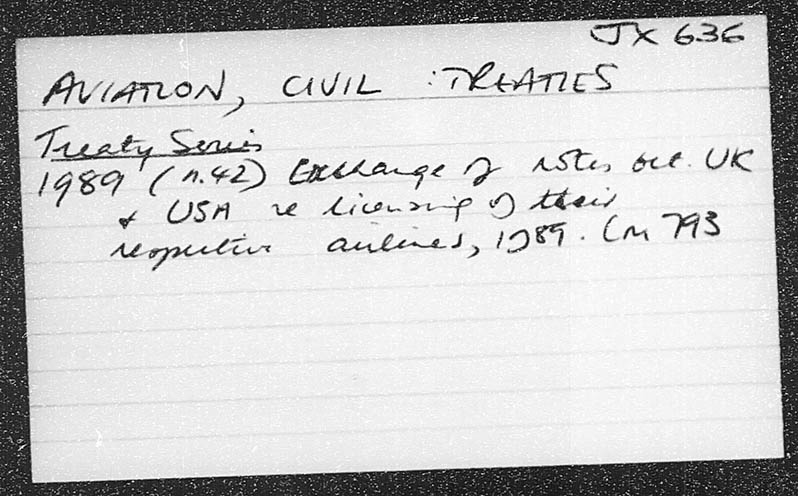 JX 636
AVIATION, CIVIL : TREATIES
Treaty Series
1989 (n.42) Exchange of notes bet. UK
& USA re licensing of their
respective airlines, 1989. Cm 793